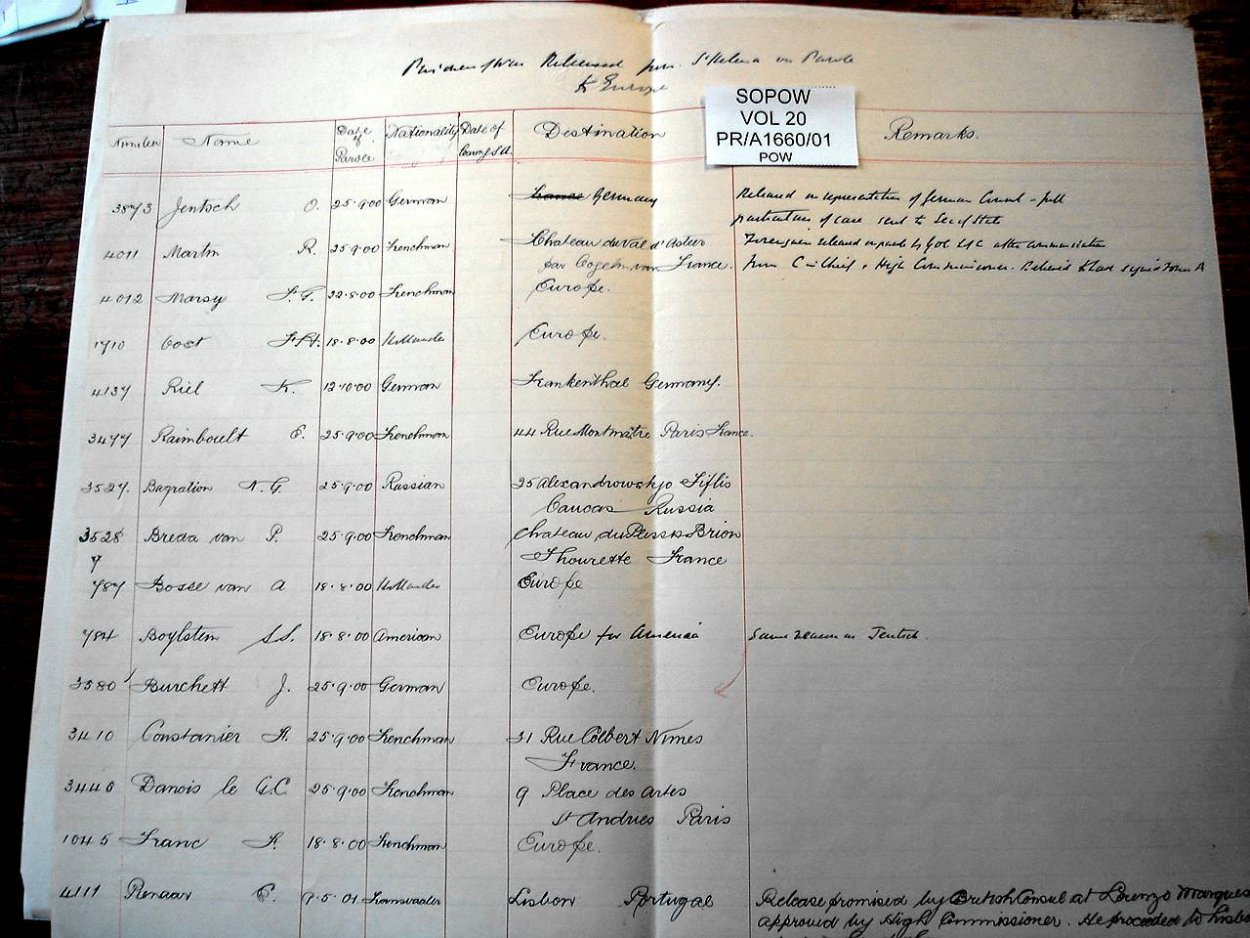 Prisoners of War Released from St Helena on Parole
to Europe
SOPOW
VOL 20
PR/A1660/01
POW
Number Name Date of Parole Nationality Date of Destination Remarks.
3873 Jentsch O. 25.9.00 German France Germany Released on representation of German Consul - full
particulars of case sent to Sec of State
4011 Martin R. 25.9.00 Frenchman Chateau du Val d'Astier Foreigner released on parole by GOC after communication
par Cogolin var France. from C in Chief & High Commissioner. Released & has signed Form A
4012 Marsy F.G. 22.8.00 Frenchman Europe.
1710 Oost F.H. 18.8.00 Hollander Europe.
4137 Riel K. 12.10.00 German Frankenthal Germany.
3477 Raimboult E. 25.9.00 Frenchman 44 Rue Montmâtre Paris France.
3527. Bagration N.G. 25.9.00 Russian 25 Alexandrowskjo Tiflis
Caucas Russia
3528 Breda van P. 25.9.00 Frenchman Chateau du Plessis Brion
7 Thourette France
787 Bosse van A 18.8.00 Hollander Europe
784 Boylstem S.S. 18.8.00 American Europe for America Same reason as Jentsch.
3580 Burchett J. 25.9.00 German Europe.
3410 Constanier A. 25.9.00 Frenchman 31 Rue Colbert Nimes
France.
3446 Danois le G.C. 25.9.00 Frenchman 9 Place des Artes
St Andries Paris
1045 Franc A. 18.8.00 Frenchman Europe.
4111 Renaar E. 9.5.01 Transvaaler Lisbon Portugal Release promised by British Consul at Lorenzo Marques
approved by High Commissioner. He proceeded to Lisbo